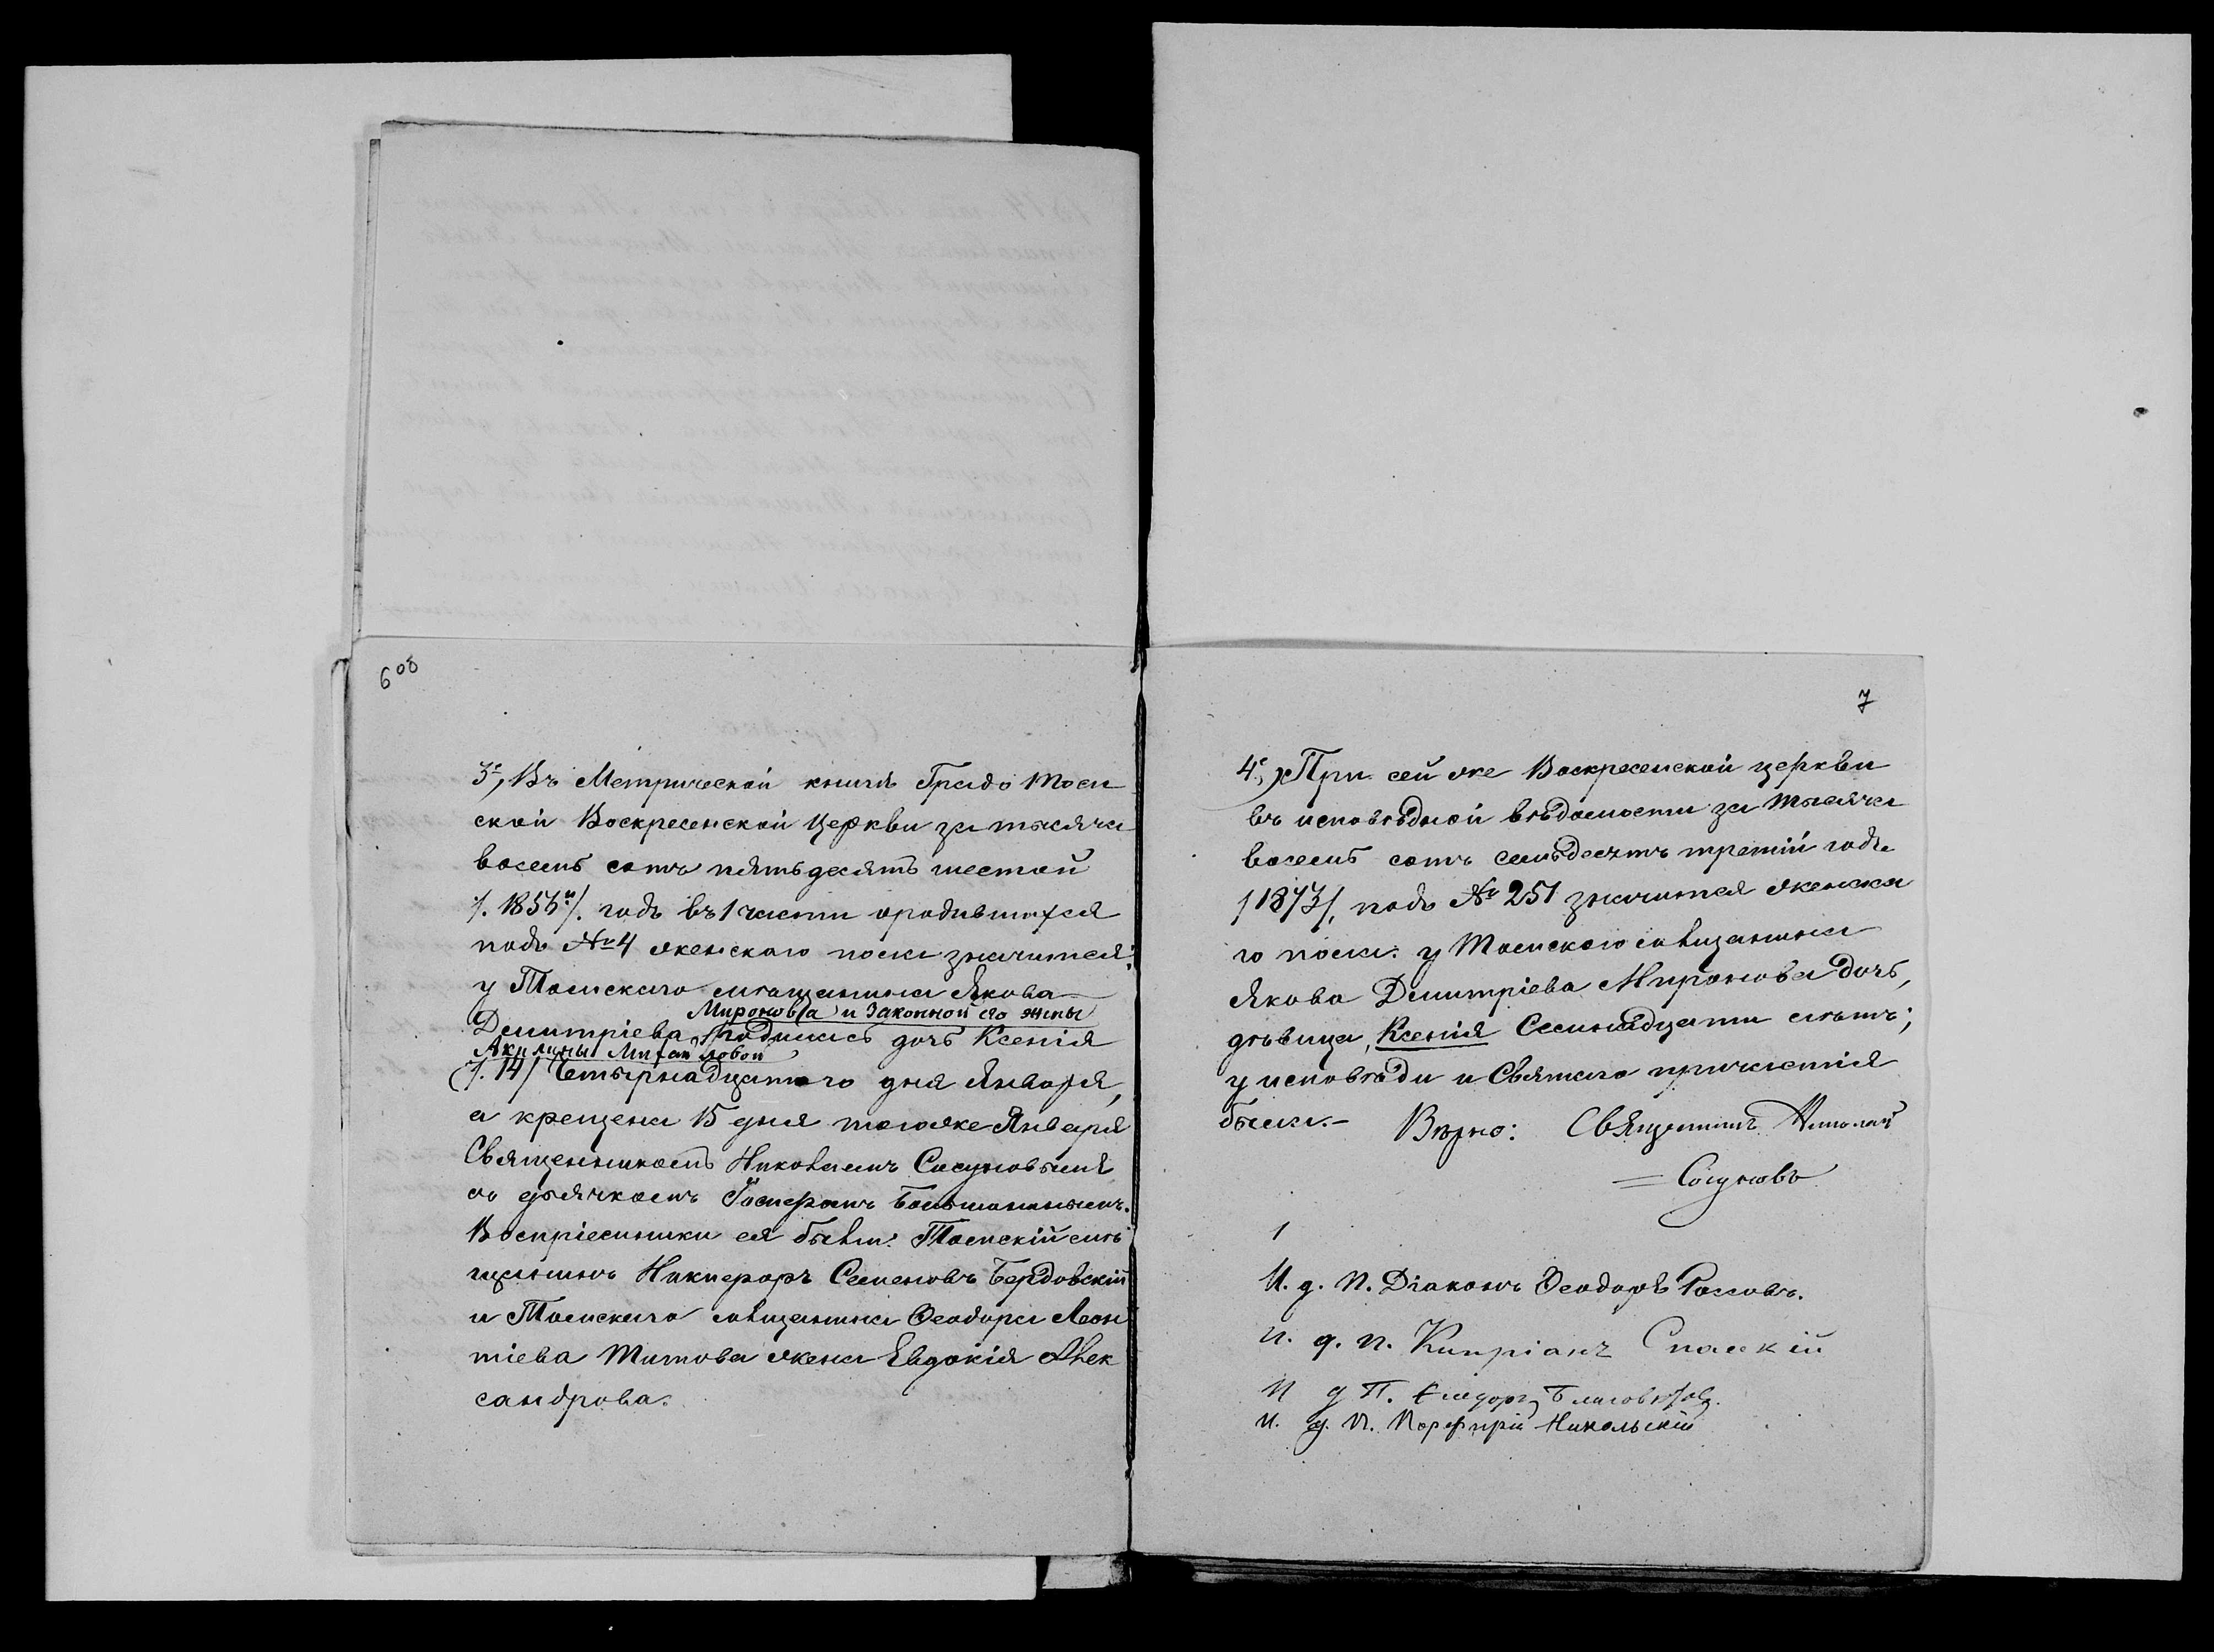 6 об
3е, Въ Метрической книгѣ Градо Том
ской Воскресенской Церкви за тысяча
восемь сотъ пятьдесятъ шестой
/. 1856й/. годъ въ 1 части о родившихся
подъ № 4 женскаго пола значится:
у Томскаго мѣщанина Якова
Миронова и Законной его жены
Димитріева родилась дочь Ксенія
Акилины Михайловой
/. 14/ Четырнадцатого дня Января,
а крещена 15 дня тогоже Января
Священникомъ Николаемъ Сосуновымъ
съ дьячкомъ Большаниномъ.
Воспріемники ея были: Томскій мѣ
щанинъ Никифоръ Семеновъ Бердовскій
и Томскаго мѣщанина Ѳеодора Леон
тіева Титова жена Евдокія Алек
сандрова.
7
4е, При сей же Воскресенской церкви
въ исповѣдной вѣдомости за тысяча
восемь сотъ семьдесятъ третій годъ
/1873/, подъ № 251 значится женска
го пола: у Томскаго мѣщанина
Якова Димитріева Миронова дочь,
дѣвица, Ксенія Семнадцати лѣтъ;
у исповѣди и Святаго причастія
была.- Вѣрно: Священникъ Николай
= Сосуновъ
1
И. д. п. Діаконъ Ѳеодоръ Россовъ.
и. д. п. Кипріанъ Спасскій
И д П.
и. д. п. Порфирій Никольскій